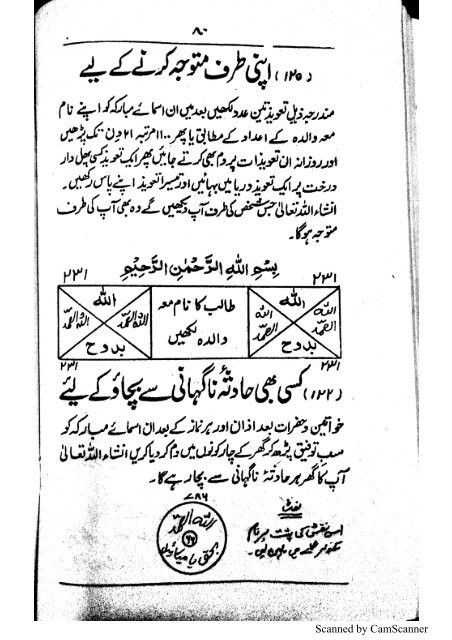 ۸۰
(۱۲۵) اپنی طرف متوجہ کرنے کے لیے
مندرجہ ذیل تعویذ تین عدد لکھیں بعد میں ان اسمائے مبارکہ کو اپنے نام
معہ والدہ کے اعداد کے مطابق یا پھر ۱۱۰۰ مرتبہ ۲۱ دن تک پڑھیں
اور روزانہ ان تعویذات پر دم بھی کرتے جائیں پھر ایک تعویذ کسی پھل دار
درخت پر ایک تعویذ دریا میں بہائیں اور تیسرا تعویذ اپنے پاس رکھیں۔
انشاء اللہ تعالیٰ جس شخص کی طرف آپ دیکھیں گے وہ بھی آپ کی طرف
متوجہ ہوگا۔
بِسْمِ اللهِ الرَّحْمٰنِ الرَّحِيْمِ
۲۳۱ ۲۳۱
الله طالب کا نام معہ الله
الله الصمد والدہ لکھیں
بدوح بدوح
۲۳۱ ۲۳۱
(۱۲۲) کسی بھی حادثۂ ناگہانی سے بچاؤ کے لیئے
خواتین و حضرات بعد اذان اور ہر نماز کے بعد ان اسمائے مبارکہ کو
حسبِ توفیق پڑھ کر گھر کے چار کونوں میں دم کر دیا کریں انشاء اللہ تعالیٰ
آپ کا گھر ہر حادثۂ ناگہانی سے بچا رہے گا۔
۷۸۶
الله الصمد
بحق یا
اس نقش کی پشت پر نام
Scanned by CamScanner